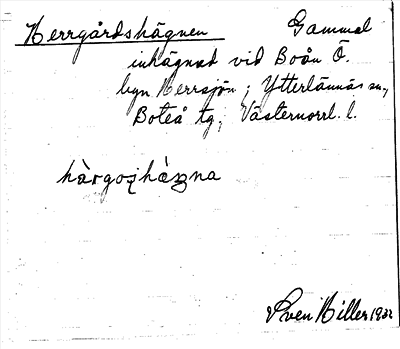 Herrgårdshägnen Gammal
inhägnad vid Boån Ö.
byn Herrsjön; Ytterlännäs sn,
Boteå tg, Västernorrl. l.
Sven Hiller 1932